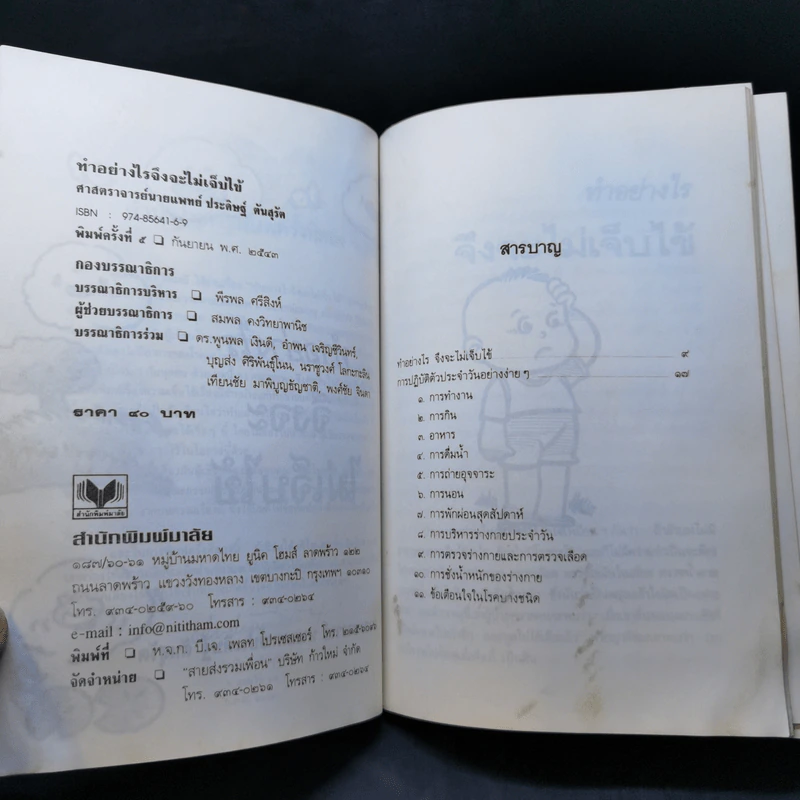 ทำอย่างไรจึงจะไม่เจ็บไข้
ศาสตราจารย์นายแพทย์ ประดิษฐ์ ตันสุรัต
ISBN : 974-85641-6-9
พิมพ์ครั้งที่ ๕ ❏ กันยายน พ.ศ. ๒๕๔๓
กองบรรณาธิการ
บรรณาธิการบริหาร ❏ พีรพล ศรีสิงห์
ผู้ช่วยบรรณาธิการ ❏ สมพล คงวิทยาพานิช
บรรณาธิการร่วม ❏ ดร.พูนพล เงินดี, อำพน เจริญชีวินทร์,
บุญส่ง ศิริพันธุ์โนน, นราชูวงศ์ โลกะกะลิน
เทียนชัย มาพิบูญธัญชาติ, พงศ์ชัย จินดา
ราคา ๔๐ บาท
สำนักพิมพ์มาลัย
สำนักพิมพ์มาลัย
๑๘๗/๖๐-๖๑ หมู่บ้านมหาดไทย ยูนิค โฮมส์ ลาดพร้าว ๑๒๒
ถนนลาดพร้าว แขวงวังทองหลาง เขตบางกะปิ กรุงเทพฯ ๑๐๓๑๐
โทร. ๙๓๔-๐๒๕๙-๖๐ โทรสาร : ๙๓๔-๐๒๖๔
e-mail : info@nititham.com
พิมพ์ที่ ❏ ห.จ.ก. บี.เจ. เพลท โปรเซสเซอร์ โทร.
จัดจำหน่าย ❏ "สายส่งรวมเพื่อน" บริษัท ก้าวใหม่ จำกัด
โทร. ๙๓๔-๐๒๖๑ โทรสาร : ๙๓๔-๐๒๖๔
สารบาญ
ทำอย่างไร จึงจะไม่เจ็บไข้ ๙
การปฏิบัติตัวประจำวันอย่างง่าย ๆ ๑๗
๑. การทำงาน
๒. การกิน
๓. อาหาร
๔. การดื่มน้ำ
๕. การถ่ายอุจจาระ
๖. การนอน
๗. การพักผ่อนสุดสัปดาห์
๘. การบริหารร่างกายประจำวัน
๙. การตรวจร่างกายและการตรวจเลือด
๑๐. การชั่งน้ำหนักของร่างกาย
๑๑. ข้อเตือนใจในโรคบางชนิด